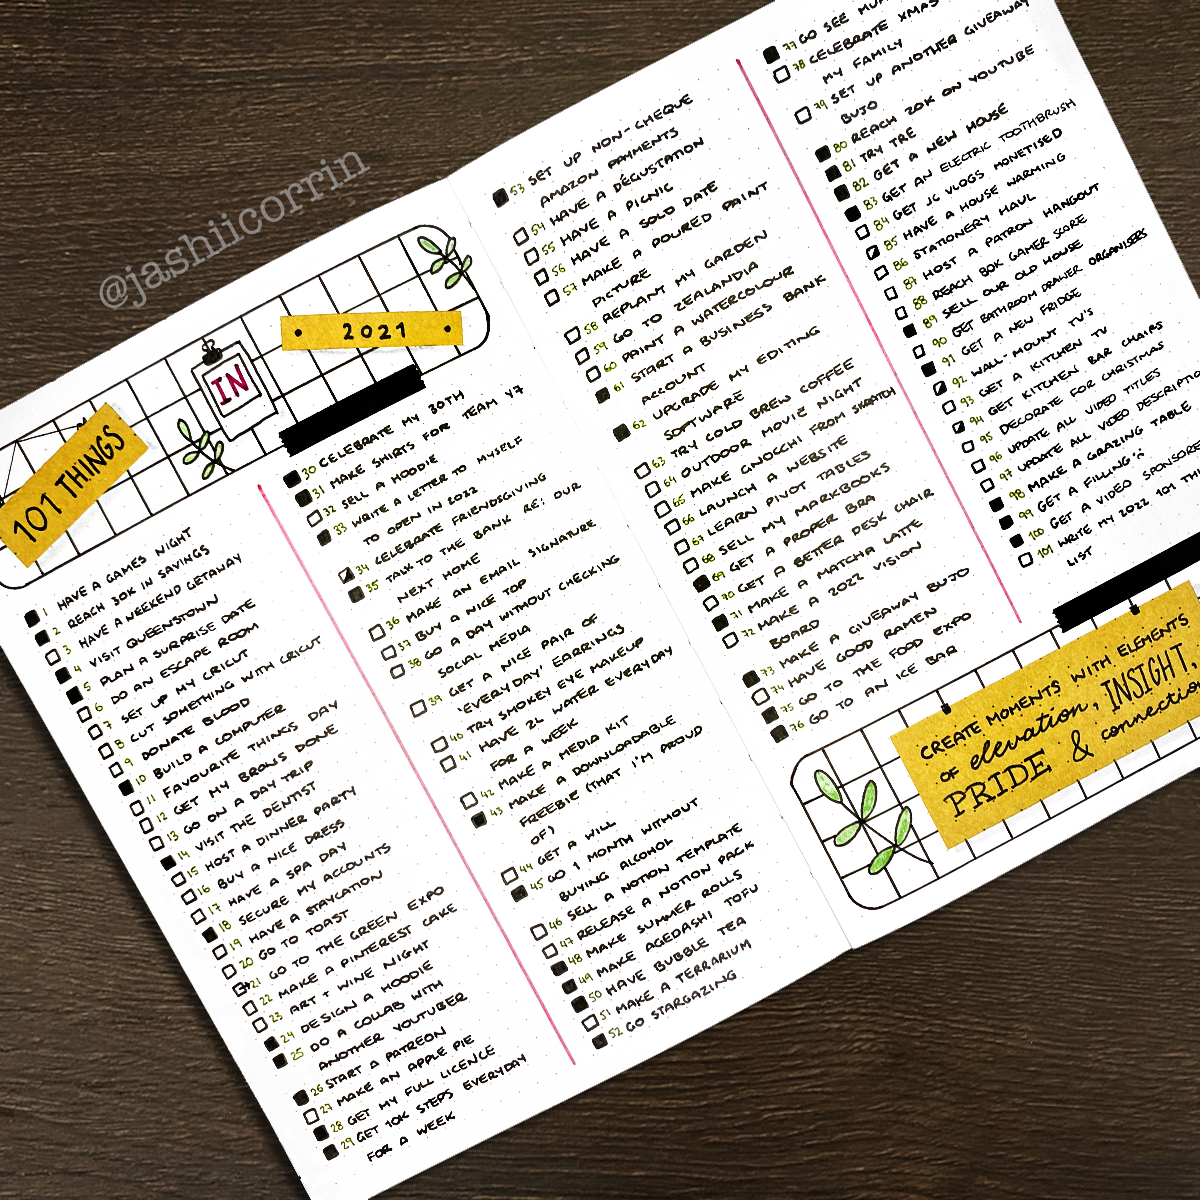 @jashiicorrin
101 THINGS
IN
2021
1 HAVE A GAMES NIGHT
2 REACH 30K IN SAVINGS
3 HAVE A WEEKEND GETAWAY
4 VISIT QUEENSTOWN
5 PLAN A SURPRISE DATE
6 DO AN ESCAPE ROOM
7 SET UP MY CRICUT
8 CUT SOMETHING WITH CRICUT
9 DONATE BLOOD
10 BUILD A COMPUTER
11 FAVOURITE THINGS DAY
12 GET MY BROWS DONE
13 GO ON A DAY TRIP
14 VISIT THE DENTIST
15 HOST A DINNER PARTY
16 BUY A NICE DRESS
17 HAVE A SPA DAY
18 SECURE MY ACCOUNTS
19 HAVE A STAYCATION
20 GO TO TOAST
21 GO TO THE GREEN EXPO
22 MAKE A PINTEREST CAKE
23 ART + WINE NIGHT
24 DESIGN A HOODIE
25 DO A COLLAB WITH
ANOTHER YOUTUBER
26 START A PATREON
27 MAKE AN APPLE PIE
28 GET MY FULL LICENCE
29 GET 10K STEPS EVERYDAY
FOR A WEEK
30 CELEBRATE MY 30TH
31 MAKE SHIRTS FOR TEAM 47
32 SELL A HOODIE
33 WRITE A LETTER TO MYSELF
TO OPEN IN 2022
34 CELEBRATE FRIENDSGIVING
35 TALK TO THE BANK RE: OUR
NEXT HOME
36 MAKE AN EMAIL SIGNATURE
37 BUY A NICE TOP
38 GO A DAY WITHOUT CHECKING
SOCIAL MEDIA
39 GET A NICE PAIR OF
'EVERYDAY' EARRINGS
40 TRY SMOKEY EYE MAKEUP
41 HAVE 2L WATER EVERYDAY
FOR A WEEK
42 MAKE A MEDIA KIT
43 MAKE A DOWNLOADABLE
FREEBIE (THAT I'M PROUD
OF)
44 GET A WILL
45 GO 1 MONTH WITHOUT
BUYING ALCOHOL
46 SELL A NOTION TEMPLATE
47 RELEASE A NOTION PACK
48 MAKE SUMMER ROLLS
49 MAKE AGEDASHI TOFU
50 HAVE BUBBLE TEA
51 MAKE A TERRARIUM
52 GO STARGAZING
53 SET UP NON-CHEQUE
AMAZON PAYMENTS
54 HAVE A DÉGUSTATION
55 HAVE A PICNIC
56 HAVE A SOLO DATE
57 MAKE A POURED PAINT
PICTURE
58 REPLANT MY GARDEN
59 GO TO ZEALANDIA
60 PAINT A WATERCOLOUR
61 START A BUSINESS BANK
ACCOUNT
62 UPGRADE MY EDITING
SOFTWARE
63 TRY COLD BREW COFFEE
64 OUTDOOR MOVIE NIGHT
65 MAKE GNOCCHI FROM SKRATCH
66 LAUNCH A WEBSITE
67 LEARN PIVOT TABLES
68 SELL MY MARKBOOKS
69 GET A PROPER BRA
70 GET A BETTER DESK CHAIR
71 MAKE A MATCHA LATTE
72 MAKE A 2022 VISION
BOARD
73 MAKE A GIVEAWAY BUJO
74 HAVE GOOD RAMEN
75 GO TO THE FOOD EXPO
76 GO TO AN ICE BAR
77 GO SEE
78 CELEBRATE XMAS
MY FAMILY
79 SET UP ANOTHER GIVEAWAY
BUJO
80 REACH 20K ON YOUTUBE
81 TRY TRE
82 GET A NEW MOUSE
83 GET AN ELECTRIC TOOTHBRUSH
84 GET JC VLOGS MONETISED
85 HAVE A HOUSE WARMING
86 STATIONERY HAUL
87 HOST A PATRON HANGOUT
88 REACH 80K GAMER SCORE
89 SELL OUR OLD HOUSE
90 GET BATHROOM DRAWER ORGANISERS
91 GET A NEW FRIDGE
92 WALL-MOUNT TV'S
93 GET A KITCHEN TV
94 GET KITCHEN BAR CHAIRS
95 DECORATE FOR CHRISTMAS
96 UPDATE ALL VIDEO TITLES
97 UPDATE ALL VIDEO DESCRIPTIO
98 MAKE A GRAZING TABLE
99 GET A FILLING
100 GET A VIDEO SPONSORE
101 WRITE MY 2022 101 TH
LIST
CREATE MOMENTS WITH ELEMENTS
OF elevation, INSIGHT,
PRIDE & connection